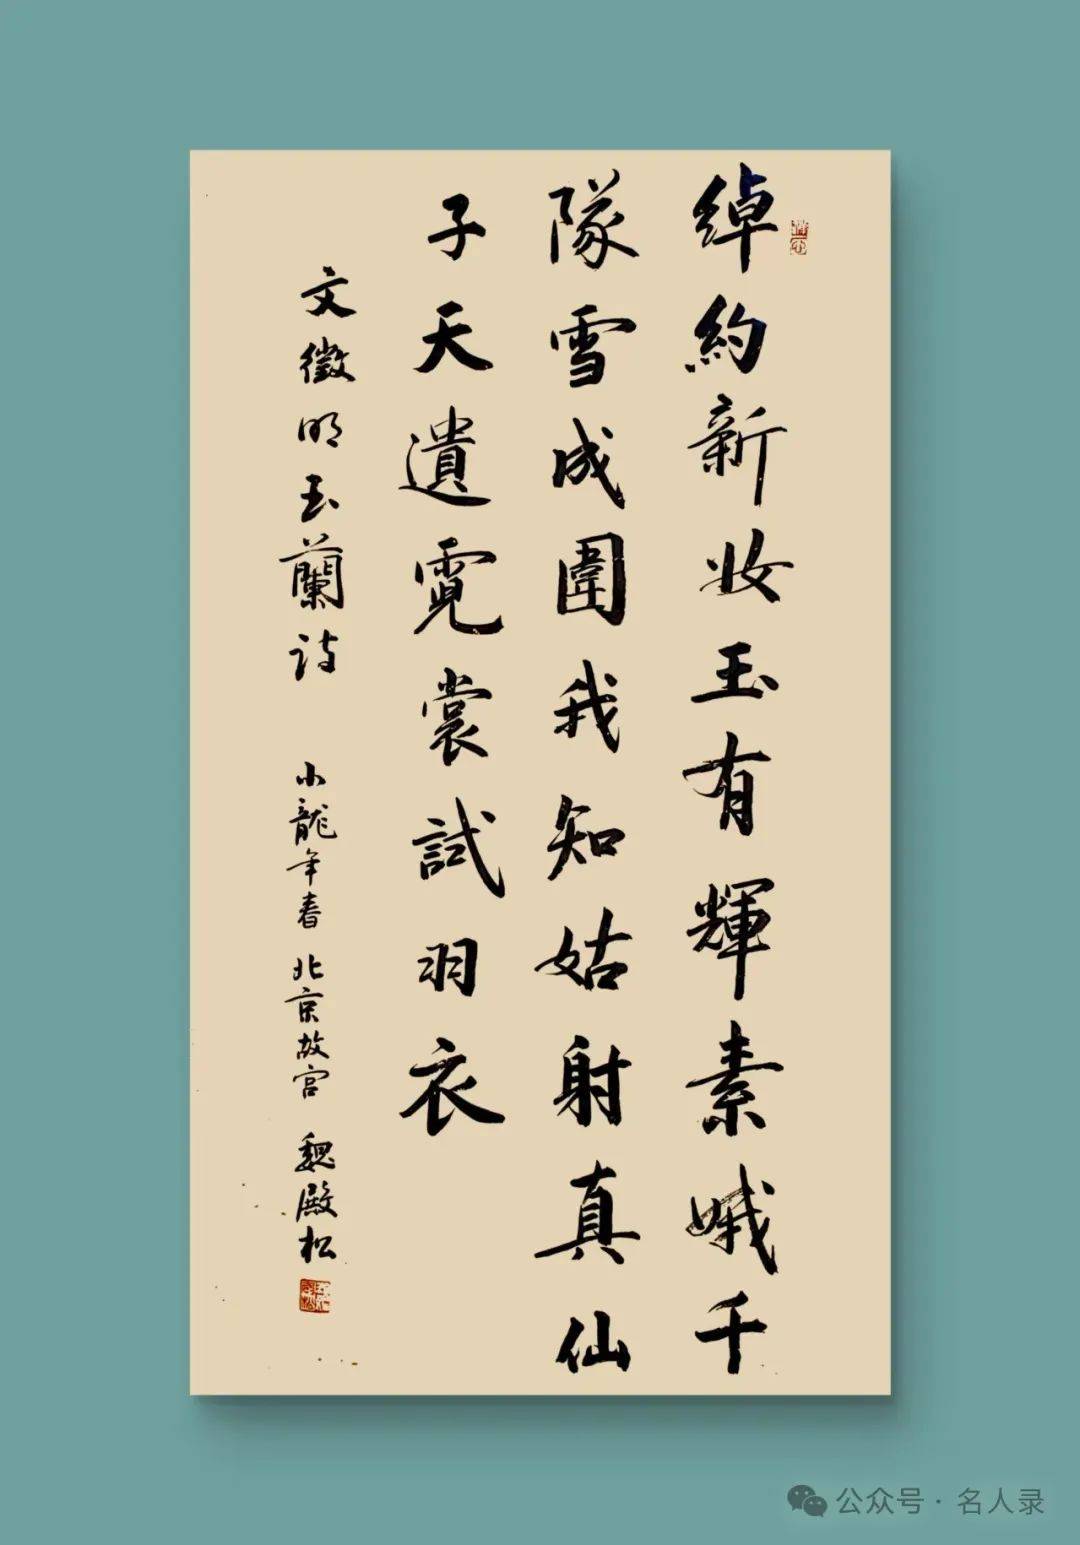 綽約新妝玉有輝素娥千
隊雪成圍我知姑射真仙
子天遺霓裳試羽衣
文徵明玉蘭詩 小龍年春 北京故宫 魏殿松
公众号·名人录